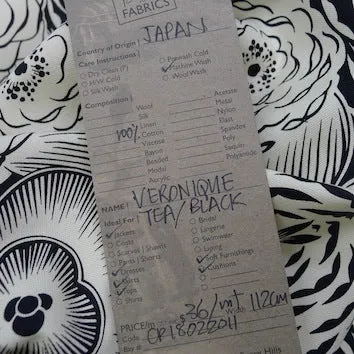 FABRICS
Country of Origin | JAPAN
Care Instructions |
Dry Clean (P)
H/W Cold
Silk Wash
Prewash Cold
Machine Wash
Wool Wash
Composition |
Wool
Silk
Linen
100% Cotton
Viscose
Rayon
Beaded
Modal
Acrylic
Acetate
Metal
Nylon
Spandex
Poly
Polyamide
NAME | VERONIQUE
TEA/BLACK
Ideal For |
Jackets
Coats
Scarves | Shawls
Pants | Shorts
Dresses
Skirts
Tops
Shirts
Bridal
Lingerie
Swimwear
Lining
Soft Furnishings
Cushions
PRICE/m $36/mt Width 112cm
Code CP18022011
Bay #
Hills